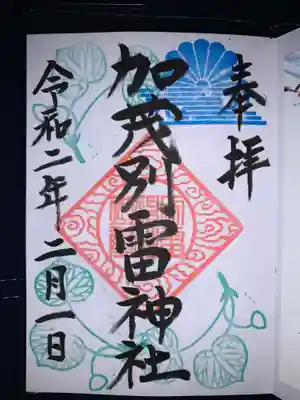 奉拝
加茂別雷神社
令和二年二月一日